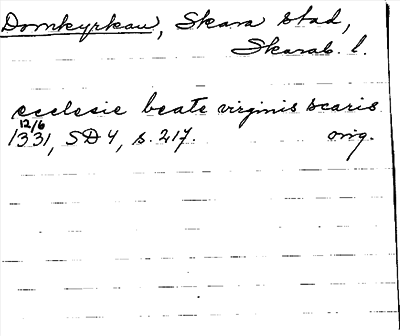 Domkyrkan, Skara stad,
Skarab. l.
ecclesie beate virginis scaris
12/6
1331, SD 4, s. 217. orig.